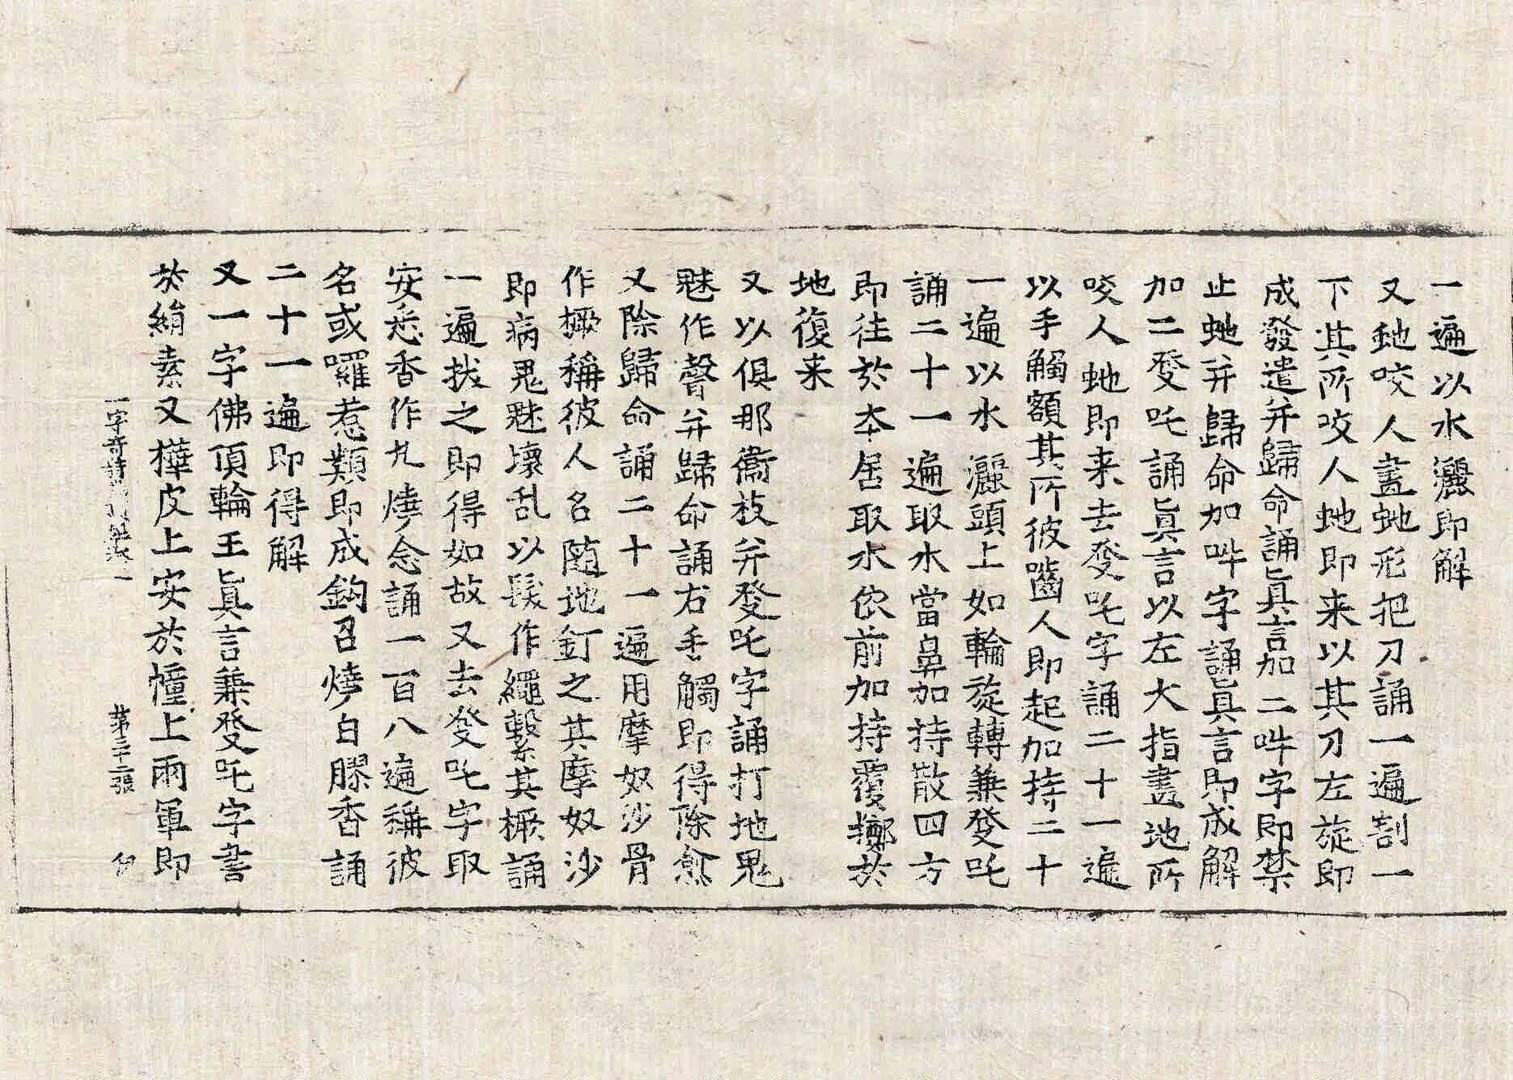 一遍以水灑即解
又虵咬人畫虵形把刀誦一遍割一
下其所咬人虵即来以其刀左旋即
成發遣并歸命誦眞言加二吽字即禁
止虵并歸命加吽字誦眞言即成解
加二癹吒誦眞言以左大指畫地所
咬人虵即来去癹吒字誦二十一遍
以手觸額其所彼嚙人即起加持二十
一遍以水灑頭上如輪旋轉兼癹吒
誦二十一遍取水當鼻加持散四方
即往於夲居取水依前加持覆擲於
地復来
又以俱那衞枝并癹吒字誦打地鬼
魅作聲并歸命誦右手觸即得除愈
又除歸命誦二十一遍用摩奴沙骨
作橛稱彼人名随地釘之其摩奴沙
即病鬼魅壞乱以髮作繩繫其橛誦
一遍拔之即得如故又去癹吒字取
安悉香作丸燒念誦一百八遍稱彼
名或囉惹類即成鈎召燒白膠香誦
二十一遍即得解
又一字佛頂輪王眞言兼癹吒字書
於絹素又樺皮上安於幢上兩軍即
一字奇特 第三十二張